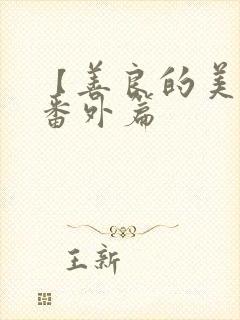 【善良的美
番外篇
王新